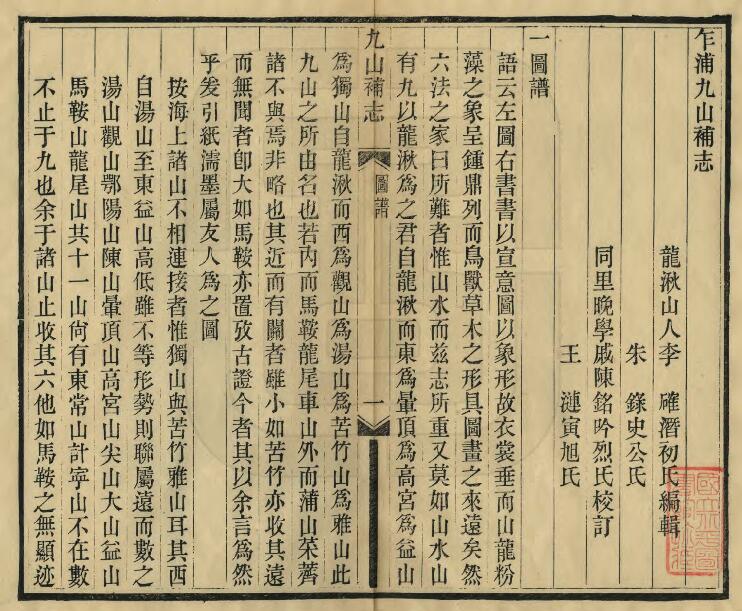 乍浦九山補志
龍湫山人李　確潛初氏編輯
朱　籙史公氏
同里晚學戚陳銘吟烈氏校訂
王　漣寅旭氏
一圖譜
語云左圖右書書以宣意圖以象形故衣裳垂而山龍粉
藻之象呈鍾鼎列而鳥獸草木之形具圖畫之來遠矣然
六法之家曰所難者惟山水而茲志所重又莫如山水山
有九以龍湫爲之君自龍湫而東爲暈頂爲高宮爲益山
九山補志
圖譜
一
爲獨山自龍湫而西爲觀山爲湯山爲苦竹山爲雅山此
九山之所由名也若內而馬鞍龍尾車山外而蒲山菜薺
諸不與焉非略也其近而有關者雖小如苦竹亦收其遠
而無聞者卽大如馬鞍亦置攷古證今者其以余言爲然
乎爰引紙濡墨屬友人爲之圖
按海上諸山不相連接者惟獨山與苦竹雅山耳其西
自湯山至東益山高低雖不等形勢則聯屬遠而數之
湯山觀山鄂陽山陳山暈頂山高宮山尖山大山益山
馬鞍山龍尾山共十一山尙有東常山計寧山不在數
不止于九也余于諸山止收其六他如馬鞍之無顯迹